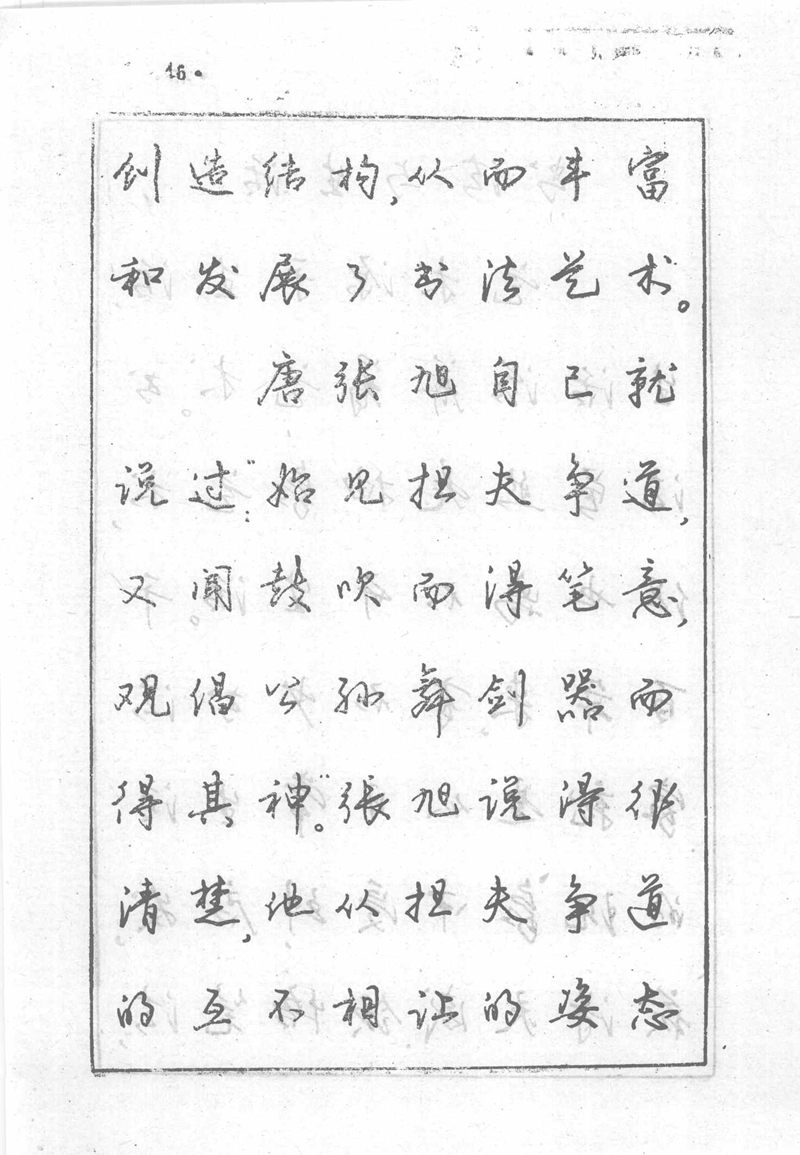 16.
创造结构,从而丰富
和发展了书法艺术。
唐张旭自己就
说过:“始见担夫争道,
又闻鼓吹而得笔意,
观倡公孙舞剑器而
得其神。”张旭说得很
清楚,他从担夫争道
的互不相让的姿态